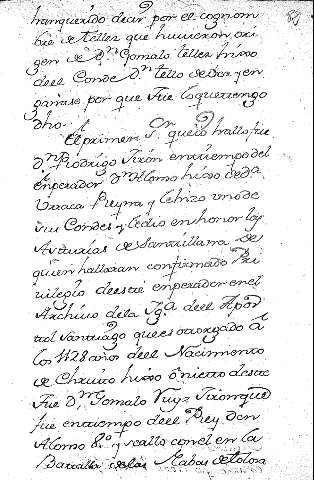 han querido decir por el cognom
bre de tellez que huuieron ori
gen de Dn Gonzalo tellez hixo
deel Conde Dn tello
garse por que fue lo que tiengo
dho.
El primer Sr que io hallo fue
Dn Rodrigo Jiron en tiempo del
emperador Dn Alonso hixo de Da
Vrraca Reyna y le hizo uno de
sus Condes y le dio en honor las
Asturias de Santillana de
quien hallaran confirmado Pri
uilegio de este enperador en el
Archiuo de la Iga deel Apos
tol Santiago que es otorgado á
los 1128 años deel Nacimiento
de Christo hixo ô nieto deste
fue Dn Gonzalo Ruyz Jiron que
fue en tiempo deel Rey Don
Alonso 8º y se allo con el en la
Batalla de las Nabas de tolosa